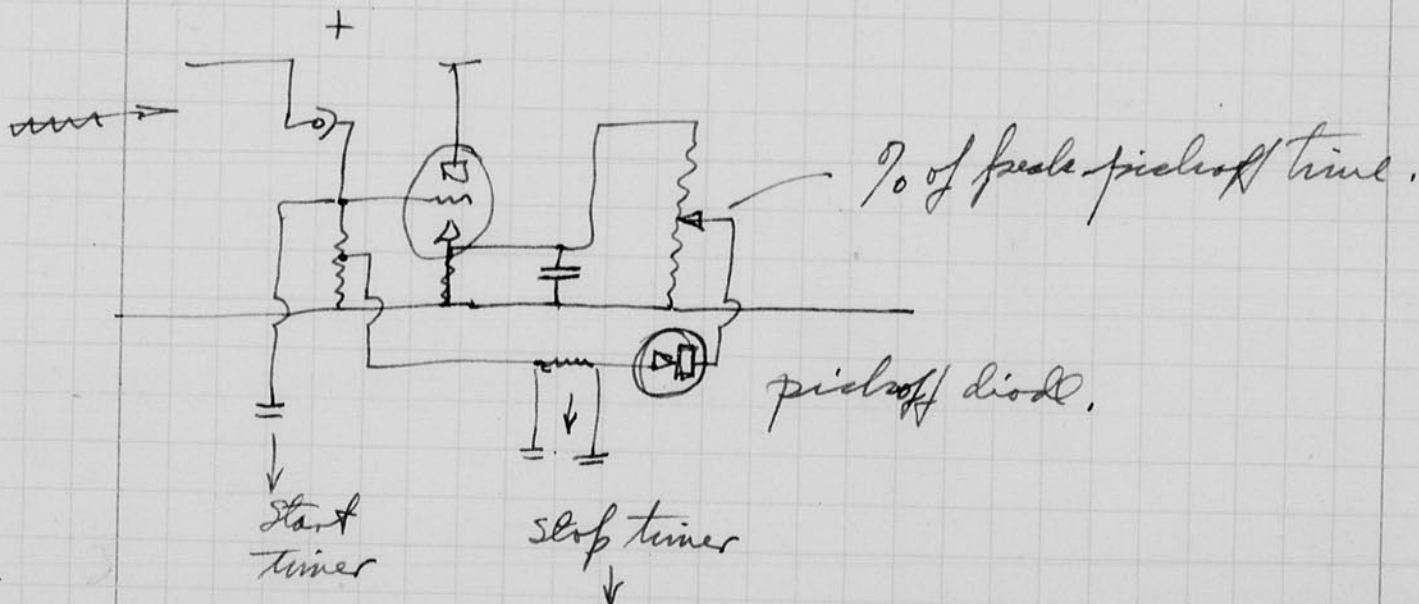 +
% of peak pickoff time.
pickoff diode.
Start
timer
stop timer